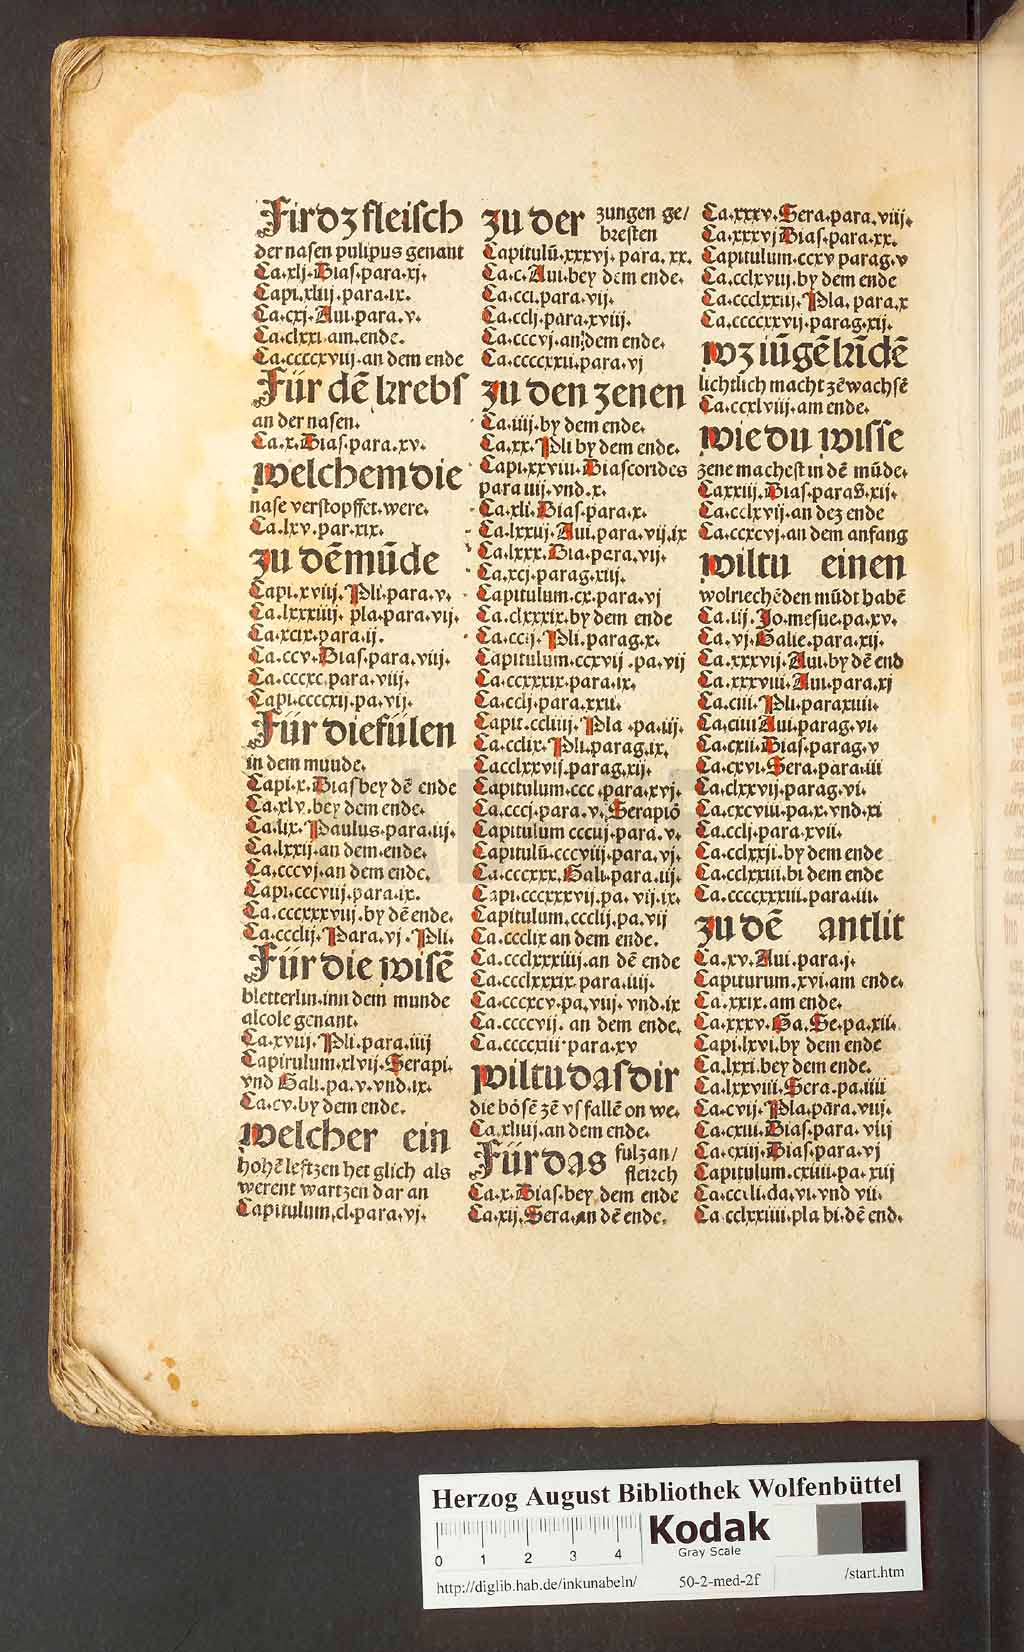 Fir dz fleisch
der nasen pulipus genant
Ca.xlj.Dias.para.xj.
Capi.xliij.para.ix.
Ca.cxj.Aui.para.v.
Ca.clxxi.am.ende.
Ca.ccccxviij.an dem ende
Für dē krebs
an der nasen.
Ca.x.Dias.para.xv.
welchem die
nase verstopffet.were.
Ca.lxv.par.xix.
zu dē mūde
Capi.xviij.Pli.para.v.
Ca.lxxxiiij. pla.para.vij.
Ca.xcix.para.ij.
Ca.ccv.Dias.para.viij.
Ca.cccxc.para.viij.
Capi.ccccxij.pa.vij.
Für die fülen
in dem munde.
Capi.x.Dias bey dē ende
Ca.xlv.bey dem ende.
Ca.lix.Paulus.para.iij.
Ca.lxxij.an dem.ende.
Ca.cccvj.an dem ende.
Capi.cccviij.para.ix.
Ca.cccxxxviij.by dē ende.
Ca.cccclij.Para.vj.Pli.
Für die wisē
bletterlin.inn dem munde
alcole genant.
Ca.xviij.Pli.para.iiij
Capitulum.xlvij.Serapi.
vnd Gali.pa.v.vnd.ix.
Ca.cv.by dem ende.
welcher ein
hohē leftzen het glich als
werent wartzen dar an
Capitulum.cl.para.vj.
zu der zungen ge/
bresten
Capitulū.xxxvj. para. xx.
Ca.c.Aui.bey dem ende.
Ca.cci.para.vij.
Ca.cclj.para.xviij.
Ca.cccvj.an dem ende.
Ca.ccccxxii.para.vj
zu den zenen
Ca.iiij.by dem ende.
Ca.xx.Pli by dem ende.
Capi.xxviii.Diascorides
para iiij.vnd.x.
Ca.xli.Dias.para.x.
Ca.lxxiij.Aui.para.vij.ix
Ca.lxxx.Dia.para.vij.
Ca.xcj.parag.xiij.
Capitulum.cx.para.vj
Ca.clxxxix.by dem ende
Ca.ccij.Pli.parag.x.
Capitulum.ccxvij.pa.vij
Ca.ccxxxix.para.ix.
Ca.cclj.para.xxii.
Capit.ccliiij.Pla.pa.iij.
Ca.cclix.Pli.parag.ix.
Cacclxxvij.parag.xij.
Capitulum.ccc.para.xvj.
Ca.cccj.para.v.Serapiō
Capitulum cccuj.para.v.
Capitulū.cccviij.para.vj.
Ca.cccxxx.Gali.para.iij.
Capi.cccxxxvij.pa.vij.ix.
Capitulum.cccclij.pa.vij
Ca.ccclix an dem ende.
Ca.ccclxxxiiij.an dē ende
Ca.ccclxxxix.para.iiij.
Ca.cccxcv.pa.viij. vnd.ix
Ca.ccccvij. an dem ende.
Ca.ccccxiii.para.xv
wiltu das dir
die bösē zē vs fallē on we.
Ca.xliiij.an dem ende.
Für das fulzan/
fleisch
Ca.x.Dias.bey dem ende
Ca.xij.Sera.an dē ende.
Ca.xxxv.Sera.para.viij.
Ca.xxxvj Dias.para.xx.
Capitulum.ccxv parag.v
Ca.cclxviij.by dem ende
Ca.ccclxxiij.Pla. para.x
Ca.ccccxxvij.parag.xij.
wz iūgē kīdē
lichtlich macht zē wachsē
Ca.ccxlviij.am ende.
wie du wisse
zene machest in dē mūde.
Caxxiij.Dias.parag.xij.
Ca.cclxvij.an dez ende
Ca.ccxcvj.an dem anfang
wiltu einen
wolriechēden mūdt habē
Ca.iij.Jo.mesue.pa.xv.
Ca.vj.Galie.para.xij.
Ca.xxxvij.Aui.by dē end
Ca.xxxviii.Aui.para.xj
Ca.ciii.Pli.para xiiii.
Ca.ciiii Aui.parag.vi.
Ca.cxii.Dias.parag.v
Ca.cxvi.Sera.para.iii
Ca.clxxvij.parag.vi.
Ca.cxcviii.pa.x.vnd.xi
Ca.cclj.para.xvii.
Ca.cclxxji.by dem ende
Ca.cclxxiii.bi dem ende
Ca.ccccxxxiii.para.iii.
zu dē antlit
Ca.xv.Aui.para.j.
Capiturum.xvi.am ende.
Ca.xxix.am ende.
Ca.xxxv.Ga.Se.pa.xii.
Capi.lxvi.by dem ende
Ca.lxxi.bey dem ende.
Ca.lxxviii.Sera.pa.iiii
Ca.cvij.Pla.para.viij.
Ca.cxiii.Dias.para.viij
Ca.cxiij.Dias.para.vj
Capitulum.cxiiii.pa.xiij
Ca.ccili.da.vi.vnd vii.
Ca cclxxiiii.pla bi.dē end.
Herzog August Bibliothek Wolfenbüttel
0 1 2 3 4
Kodak
Gray Scale
http://diglib.hab.de/inkunabeln/ 50-2-med-2f /start.htm